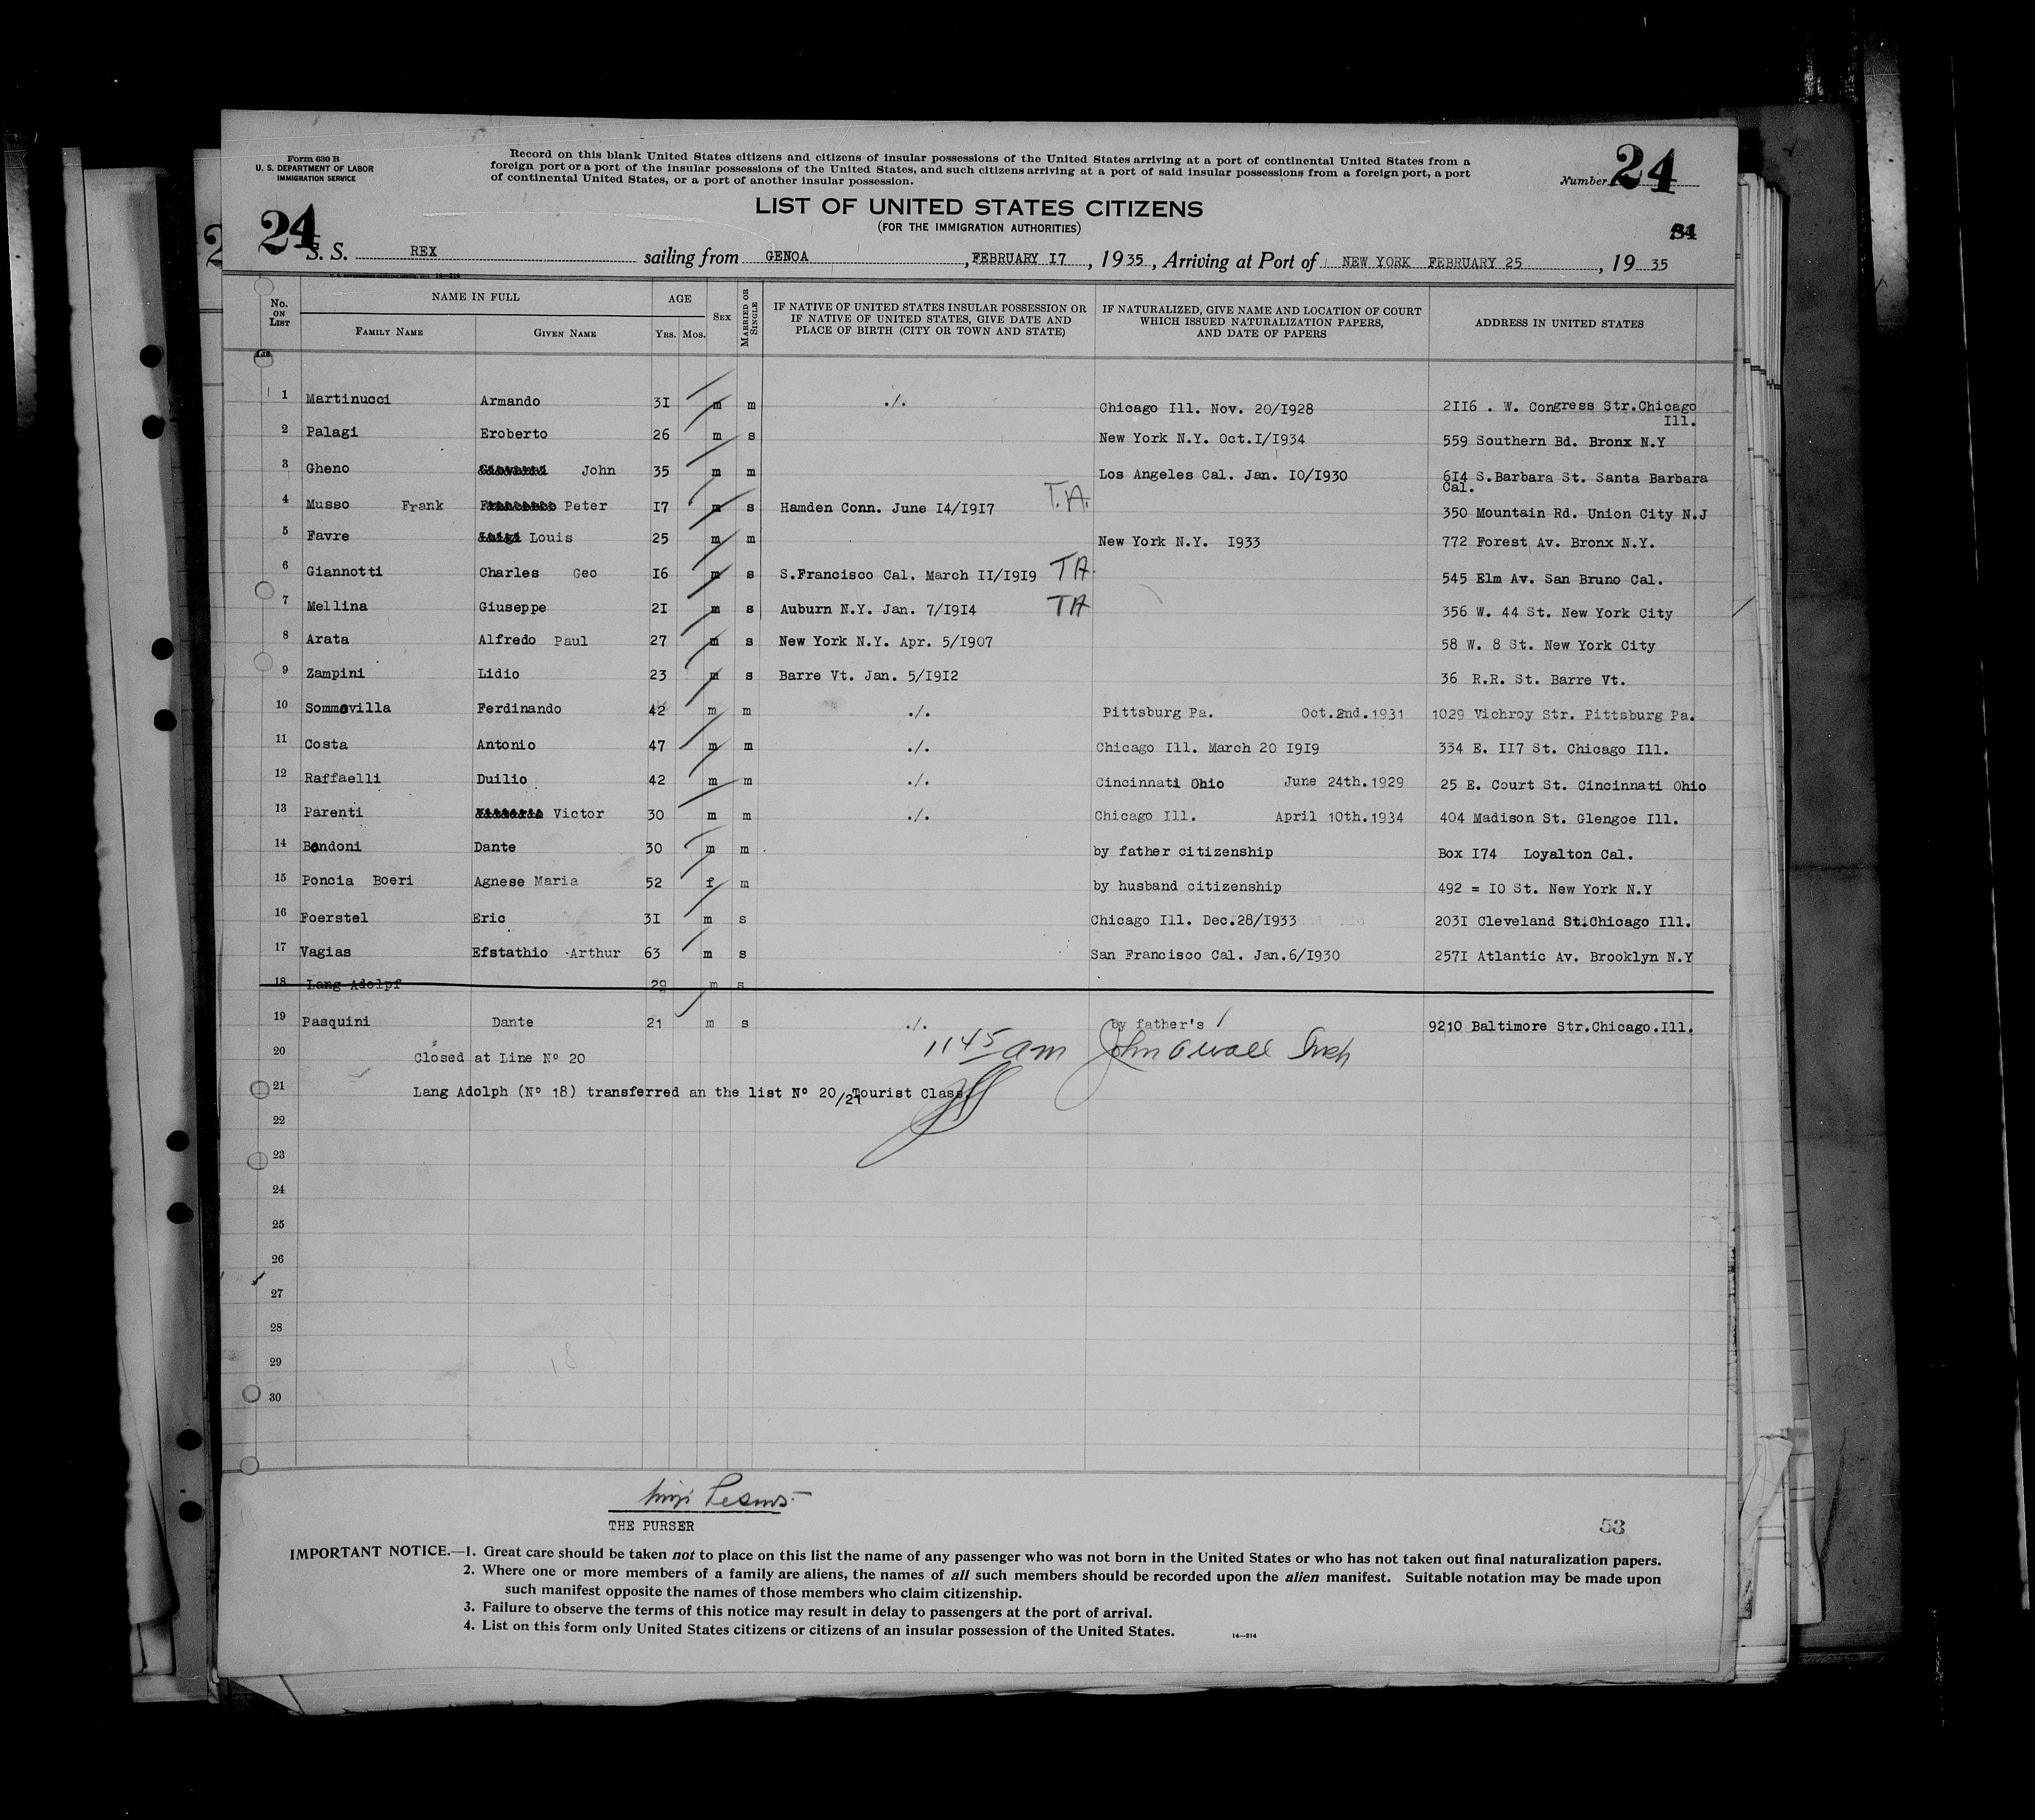 Form 630 B
U. S. DEPARTMENT OF LABOR
IMMIGRATION SERVICE
Record on this blank United States citizens and citizens of insular possessions of the United States arriving at a port of continental United States from a
foreign port or a port of the insular possessions of the United States, and such citizens arriving at a port of said insular possessions from a foreign port, a port
of continental United States, or a port of another insular possession.
Number 24
LIST OF UNITED STATES CITIZENS
(FOR THE IMMIGRATION AUTHORITIES)
24
S. S. REX sailing from GENOA , FEBRUARY I7 , 1935 , Arriving at Port of NEW YORK FEBRUARY 25 , 19 35
No. ON LIST NAME IN FULL FAMILY NAME GIVEN NAME AGE YRS. MOS. SEX MARRIED OR SINGLE
IF NATIVE OF UNITED STATES INSULAR POSSESSION OR IF NATIVE OF UNITED STATES, GIVE DATE AND PLACE OF BIRTH (CITY OR TOWN AND STATE)
IF NATURALIZED, GIVE NAME AND LOCATION OF COURT WHICH ISSUED NATURALIZATION PAPERS, AND DATE OF PAPERS
ADDRESS IN UNITED STATES
1 Martinucci Armando 3I m m ./. Chicago Ill. Nov. 20/I928 2II6 . W. Congress Str.Chicago Ill.
2 Palagi Eroberto 26 m s New York N.Y. Oct.I/I934 559 Southern Bd. Bronx N.Y
3 Gheno John 35 m m Los Angeles Cal. Jan. IO/I930 6I4 S.Barbara St. Santa Barbara Cal.
4 Musso Frank Peter I7 m s Hamden Conn. June I4/I9I7 T.A. 350 Mountain Rd. Union City N.J
5 Favre Louis 25 m m New York N.Y. I933 772 Forest Av. Bronx N.Y.
6 Giannotti Charles Geo I6 m s S.Francisco Cal. March II/I9I9 TA. 545 Elm Av. San Bruno Cal.
7 Mellina Giuseppe 2I m s Auburn N.Y. Jan. 7/I9I4 TA 356 W. 44 St. New York City
8 Arata Alfredo Paul 27 m s New York N.Y. Apr. 5/I907 58 W. 8 St. New York City
9 Zampini Lidio 23 m s Barre Vt. Jan. 5/I9I2 36 R.R. St. Barre Vt.
10 Sommavilla Ferdinando 42 m m ./. Pittsburg Pa. Oct.2nd.1931 1029 Vichroy Str. Pittsburg Pa.
11 Costa Antonio 47 m m ./. Chicago Ill. March 20 I9I9 334 E. II7 St. Chicago Ill.
12 Raffaelli Duilio 42 m m ./. Cincinnati Ohio June 24th.1929 25 E. Court St. Cincinnati Ohio
13 Parenti Victor 30 m m ./. Chicago Ill. April 10th.1934 404 Madison St. Glengoe Ill.
14 Bondoni Dante 30 m m by father citizenship Box I74 Loyalton Cal.
15 Poncia Boeri Agnese Maria 52 f m by husband citizenship 492 = IO St. New York N.Y
16 Foerstel Eric 3I m s Chicago Ill. Dec.28/I933 203I Cleveland St.Chicago Ill.
17 Vagias Efstathio Arthur 63 m s San Francisco Cal. Jan.6/I930 257I Atlantic Av. Brooklyn N.Y
18 Lang Adolpf 29 m s
19 Pasquini Dante 21 m s ./. by father's 9210 Baltimore Str.Chicago.Ill.
20 Closed at Line Nº 20 1145 am
21 Lang Adolph (Nº 18) transferred an the list Nº 20/21 Tourist Class.
22
23
24
25
26
27
28
29
30
THE PURSER
53
IMPORTANT NOTICE.—1. Great care should be taken not to place on this list the name of any passenger who was not born in the United States or who has not taken out final naturalization papers.
2. Where one or more members of a family are aliens, the names of all such members should be recorded upon the alien manifest. Suitable notation may be made upon
such manifest opposite the names of those members who claim citizenship.
3. Failure to observe the terms of this notice may result in delay to passengers at the port of arrival.
4. List on this form only United States citizens or citizens of an insular possession of the United States.
14—214